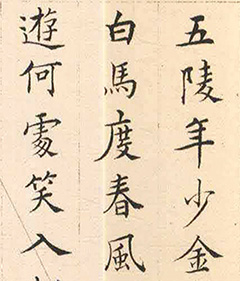 五陵年少金
白馬度春風
遊何處笑入